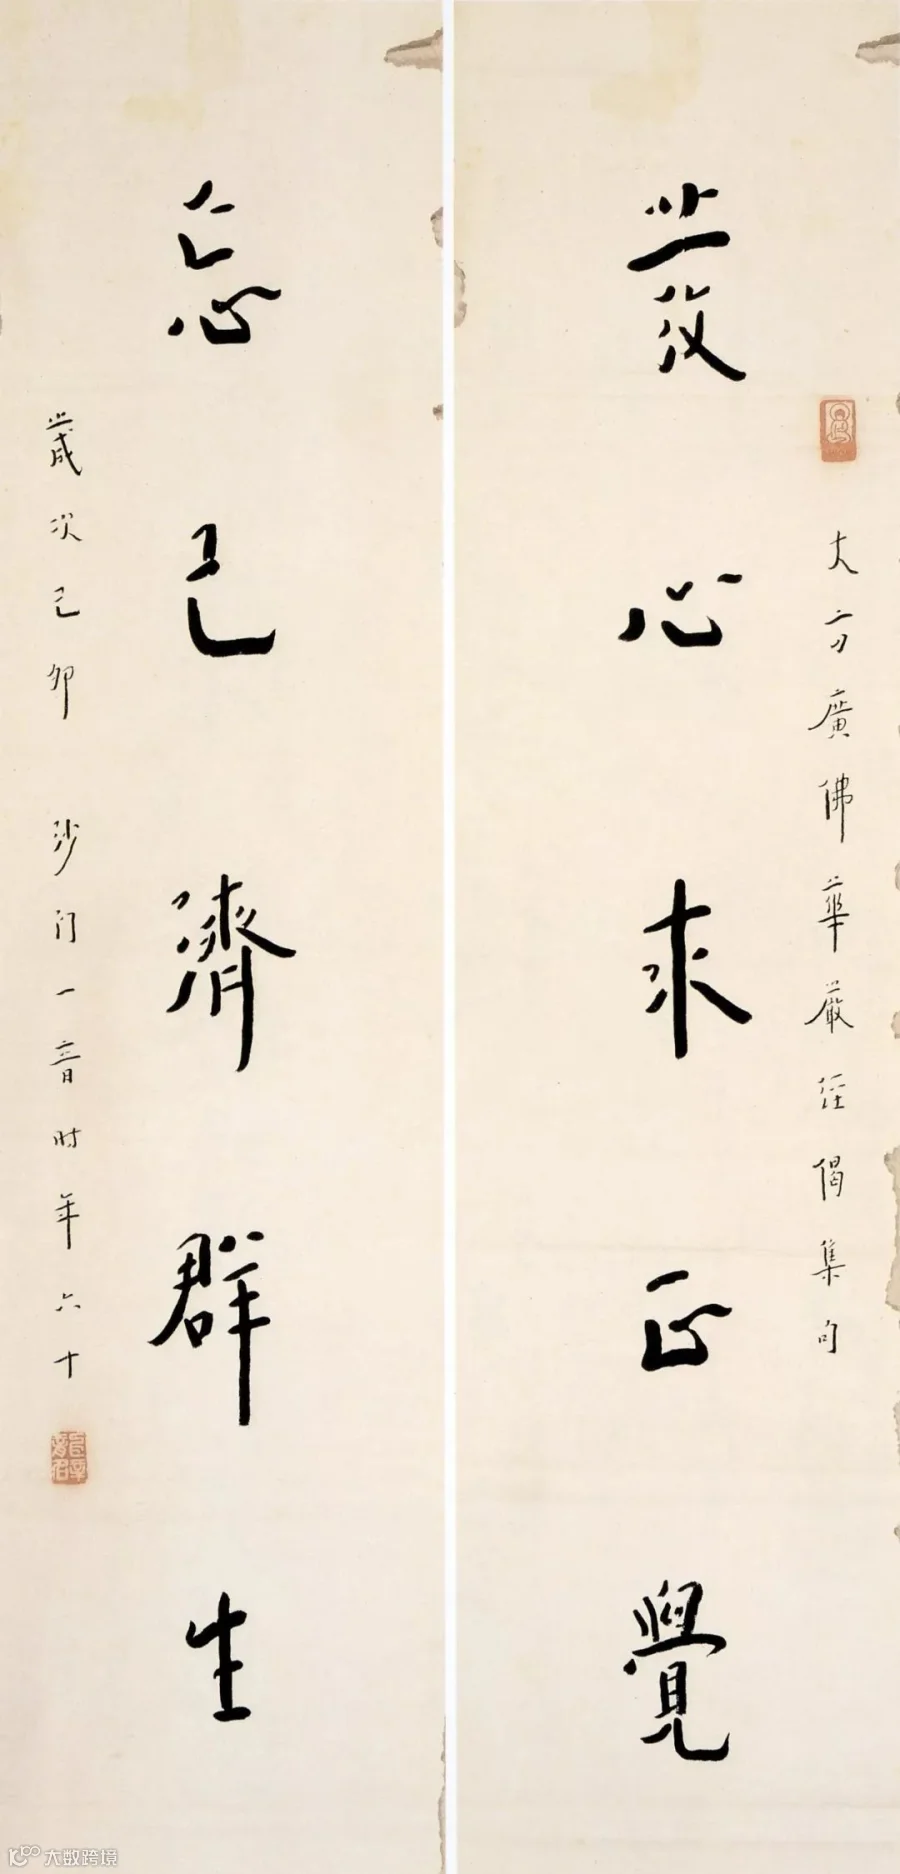 大方廣佛華嚴經偈集句
發心求正覺
忘己濟群生
歲次己卯 沙门一音时年六十
大数跨境